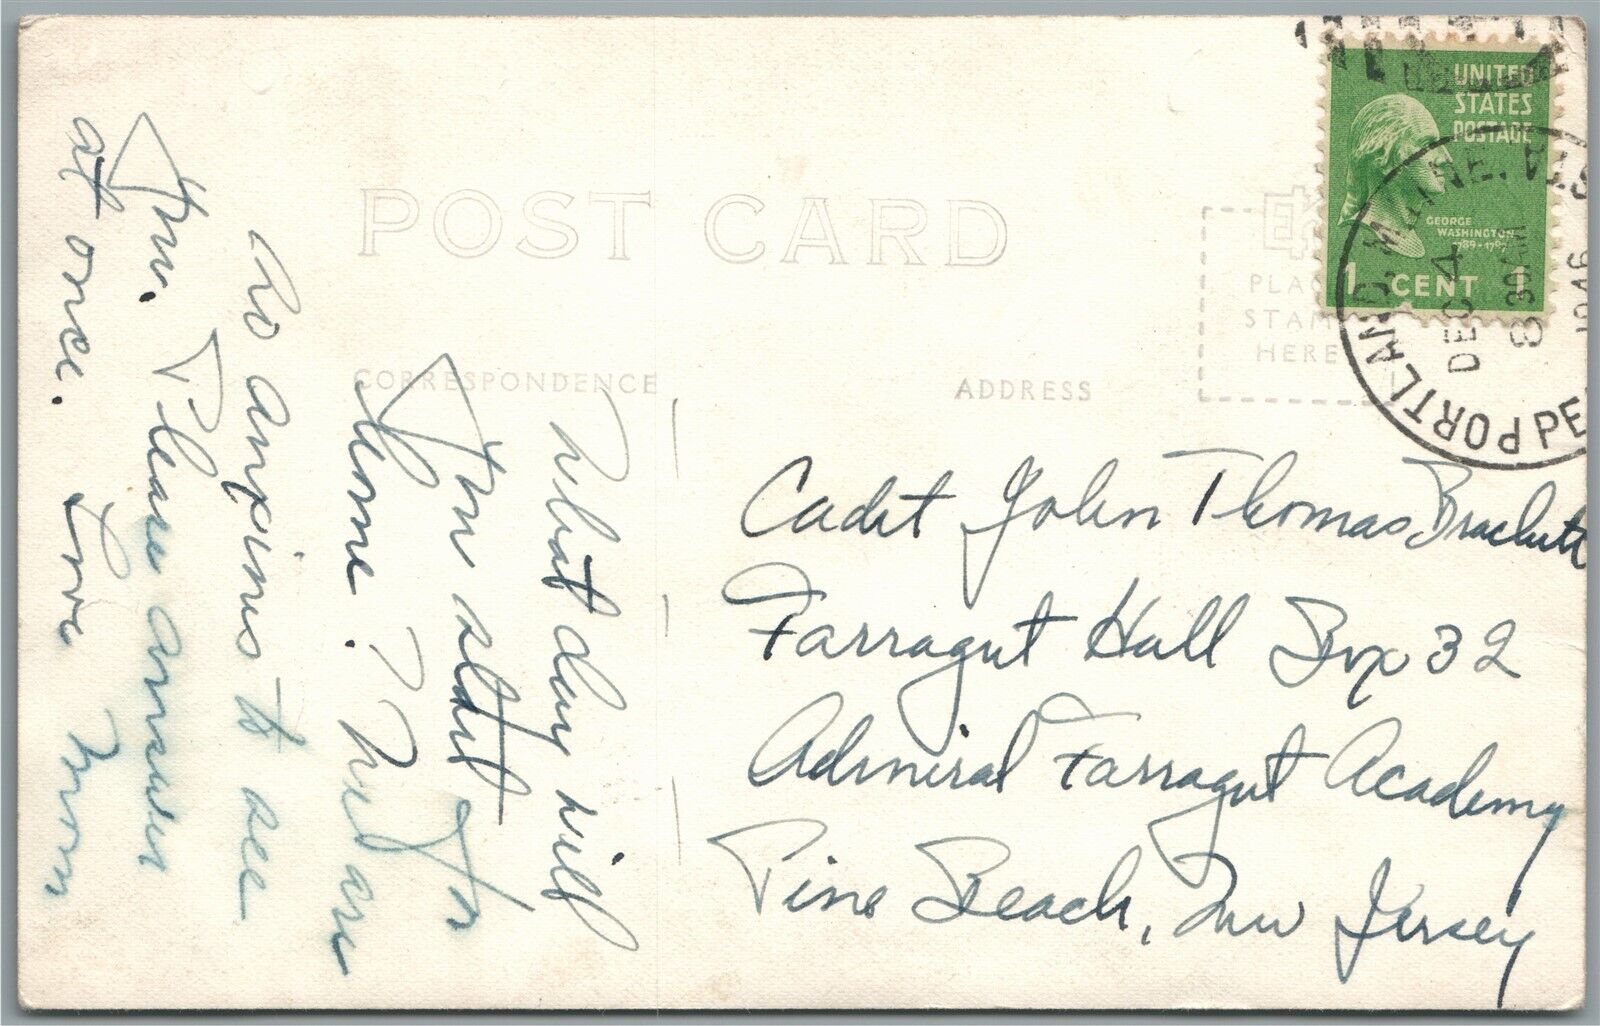 POST CARD
CORRESPONDENCE
ADDRESS
PLACE
STAMP
HERE
UNITED
STATES
POSTAGE
GEORGE
WASHINGTON
1789-1797
1 CENT 1
PORTLAND, MAINE.
DEC 4
8 30 AM
1946
What day will
you start for
home? We are
so anxious to see
you. Please answer
at once. Love Mom
Cadet John Thomas Brackett
Farragut Hall Box 32
Admiral Farragut Academy
Pine Beach, New Jersey